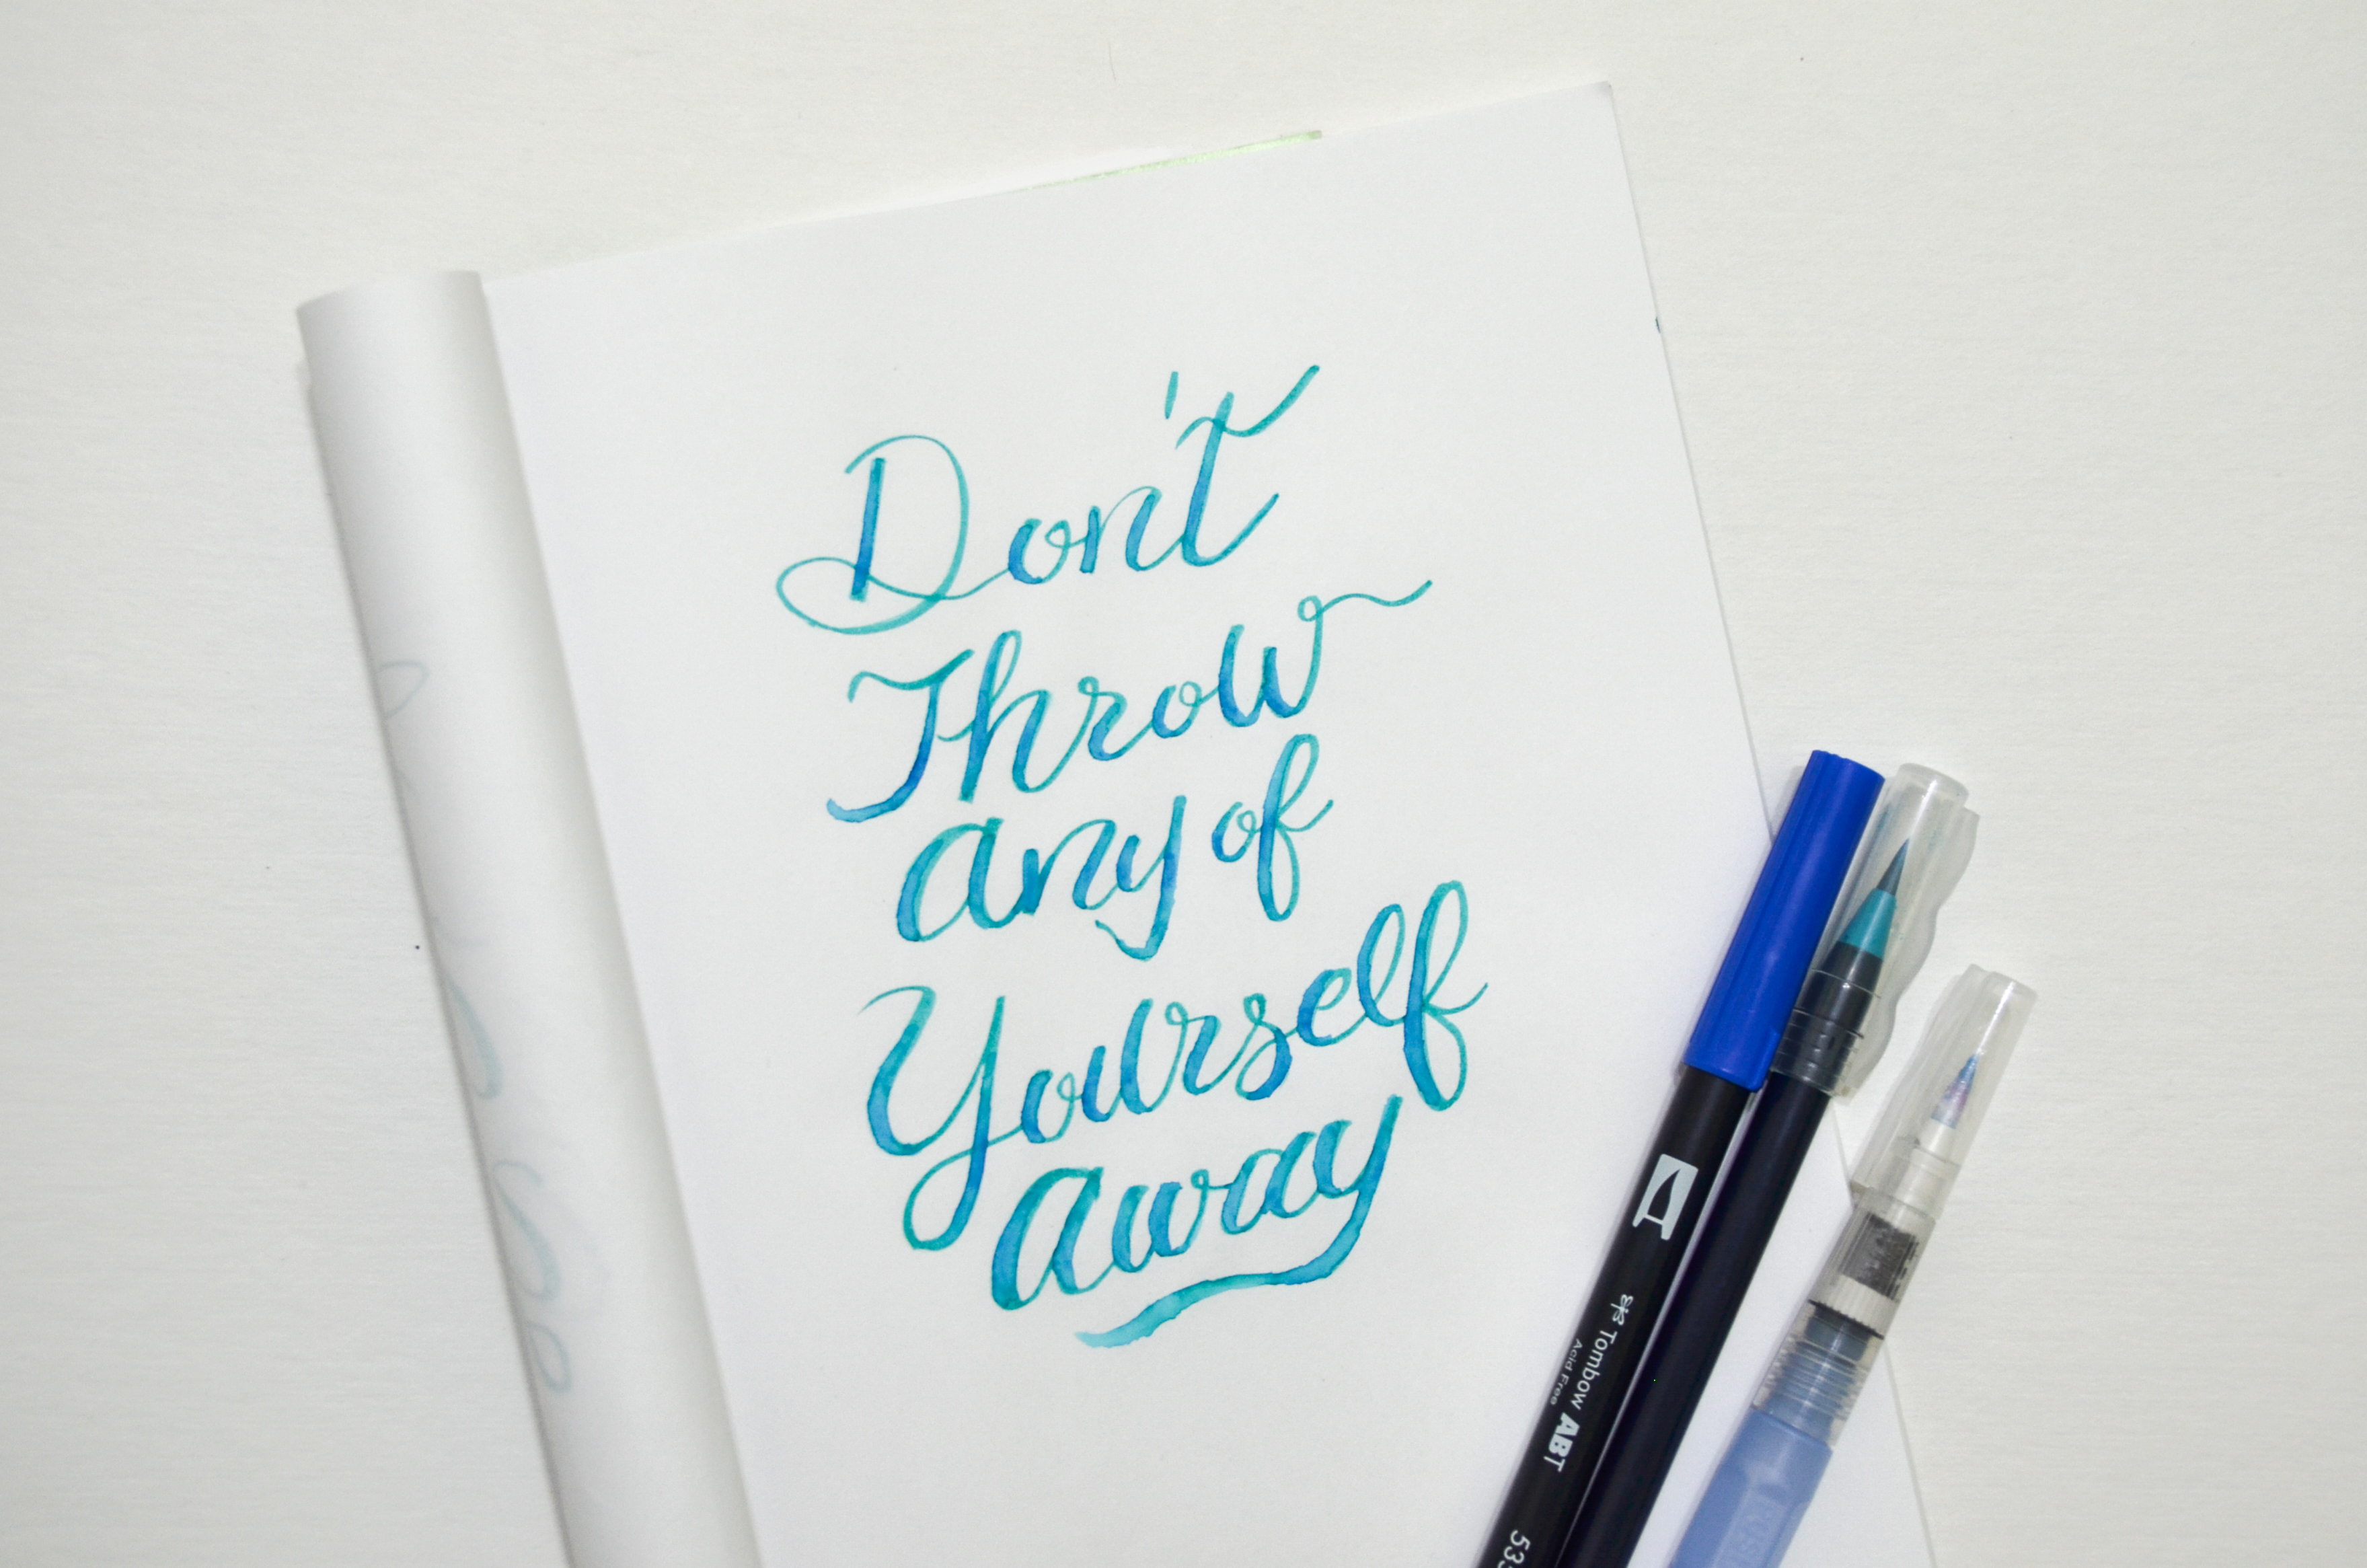 Don't
Throw
any of
Yourself
away
Tombow ABT
Acid Free